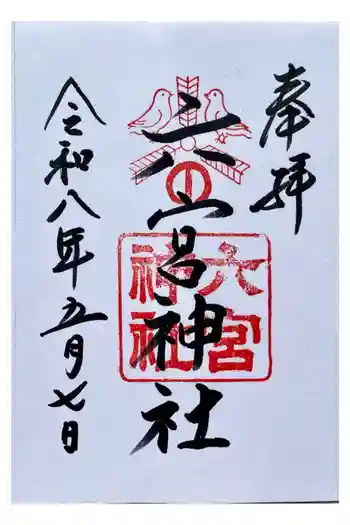 奉拝
六宮神社
六宮
神社
令和八年五月七日